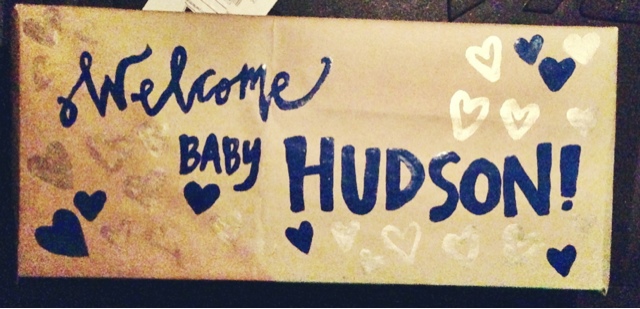 Welcome
BABY HUDSON!